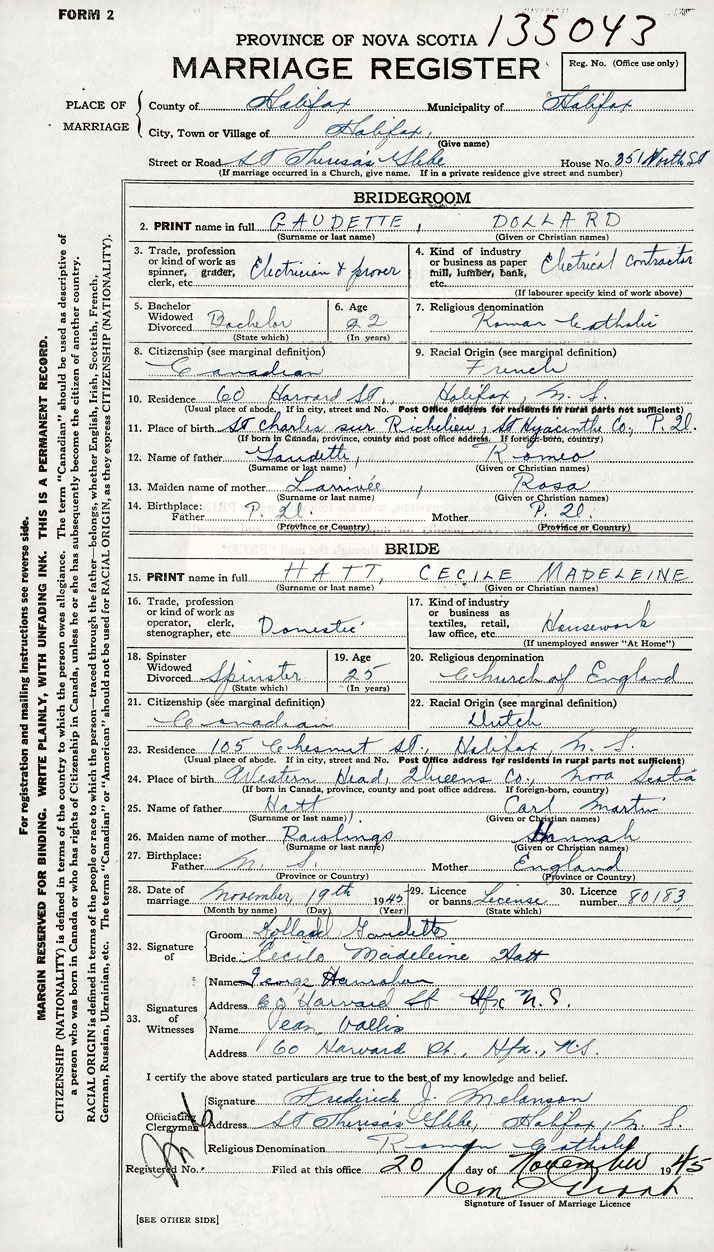 FORM 2
PROVINCE OF NOVA SCOTIA 135043
MARRIAGE REGISTER
Reg. No. (Office use only)
PLACE OF MARRIAGE
County of Halifax Municipality of Halifax
City, Town or Village of Halifax,
(Give name)
Street or Road St Theresa's Glebe House No. 351 North St
(If marriage occurred in a Church, give name. If in a private residence give street and number)
BRIDEGROOM
2. PRINT name in full GAUDETTE, DOLLARD
(Surname or last name) (Given or Christian names)
3. Trade, profession or kind of work as spinner, grader, clerk, etc. Electrician &
4. Kind of industry or business as paper mill, lumber, bank, etc. Electrical Contractor
(If labourer specify kind of work above)
5. Bachelor Widowed Divorced Bachelor
(State which)
6. Age 22
(In years)
7. Religious denomination Roman Catholic
8. Citizenship (see marginal definition) Canadian
9. Racial Origin (see marginal definition) French
10. Residence 60 Harvard St., Halifax, N. S.
(Usual place of abode. If in city, street and No. Post Office address for residents in rural parts not sufficient)
11. Place of birth St Charles sur Richelieu, St Hyacinthe Co., P. Q.
(If born in Canada, province, county and post office address. If foreign-born, country)
12. Name of father Gaudette, Romeo
(Surname or last name) (Given or Christian names)
13. Maiden name of mother Larrivée, Rosa
(Surname or last name) (Given or Christian names)
14. Birthplace: Father P. Q. Mother P. Q.
(Province or Country) (Province or Country)
BRIDE
15. PRINT name in full HATT, CECILE MADELEINE
(Surname or last name) (Given or Christian names)
16. Trade, profession or kind of work as operator, clerk, stenographer, etc. Domestic
17. Kind of industry or business as textiles, retail, law office, etc. Housework
(If unemployed answer "At Home")
18. Spinster Widowed Divorced Spinster
(State which)
19. Age 25
(In years)
20. Religious denomination Church of England
21. Citizenship (see marginal definition) Canadian
22. Racial Origin (see marginal definition) Dutch
23. Residence 105 Chesnut St., Halifax, N. S.
(Usual place of abode. If in city, street and No. Post Office address for residents in rural parts not sufficient)
24. Place of birth Western Head, Queens Co., Nova Scotia
(If born in Canada, province, county and post office address. If foreign-born, country)
25. Name of father Hatt, Carl Martin
(Surname or last name) (Given or Christian names)
26. Maiden name of mother Rawlings Hannah
(Surname or last name) (Given or Christian names)
27. Birthplace: Father N. S. Mother England
(Province or Country) (Province or Country)
28. Date of marriage November, 19th 1945
(Month by name) (Day) (Year)
29. Licence or banns License
(State which)
30. Licence number 80183
32. Signature of
Groom Dollard Gaudette
Bride Cecile Madeleine Hatt
33. Signatures of Witnesses
Name George Hanrahan
Address 60 Harvard St Hfx N.S.
Name Jean Vallis
Address 60 Harvard St., Hfx., N.S.
I certify the above stated particulars are true to the best of my knowledge and belief.
Officiating Clergyman
Signature Frederick J. Melanson
Address St Theresa's Glebe, Halifax, N. S.
Religious Denomination Roman Catholic
Registered No. Filed at this office 20 day of November 1945
Signature of Issuer of Marriage Licence
[SEE OTHER SIDE]
For registration and mailing instructions see reverse side.
MARGIN RESERVED FOR BINDING. WRITE PLAINLY, WITH UNFADING INK. THIS IS A PERMANENT RECORD.
CITIZENSHIP (NATIONALITY) is defined in terms of the country to which the person owes allegiance. The term "Canadian" should be used as descriptive of
a person who was born in Canada or who has rights of Citizenship in Canada, unless he or she has subsequently become the citizen of another country.
RACIAL ORIGIN is defined in terms of the people or race to which the person—traced through the father—belongs, whether English, Irish, Scottish, French,
German, Russian, Ukrainian, etc. The terms "Canadian" or "American" should not be used for RACIAL ORIGIN, as they express CITIZENSHIP (NATIONALITY).